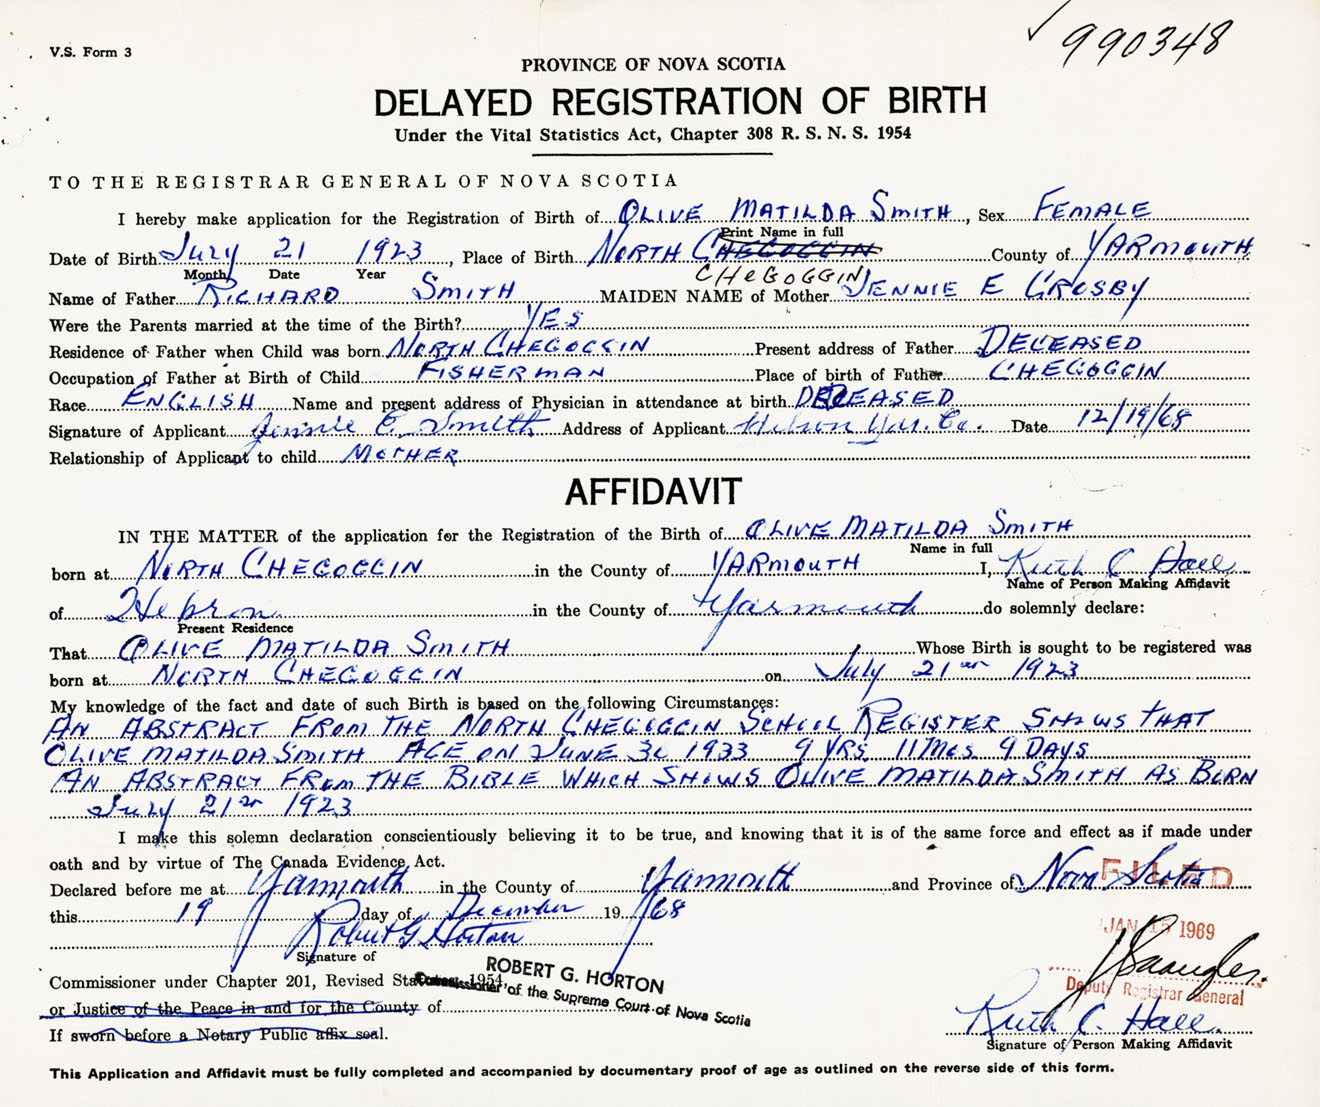 V.S. Form 3
990348
PROVINCE OF NOVA SCOTIA
DELAYED REGISTRATION OF BIRTH
Under the Vital Statistics Act, Chapter 308 R. S. N. S. 1954
TO THE REGISTRAR GENERAL OF NOVA SCOTIA
I hereby make application for the Registration of Birth of OLIVE MATILDA SMITH, Sex FEMALE
Print Name in full
Date of Birth July 21 1923, Place of Birth NORTH CHEGOGGIN County of YARMOUTH
Month Date Year CHEGOGGIN
Name of Father RICHARD SMITH MAIDEN NAME of Mother JENNIE E CROSBY
Were the Parents married at the time of the Birth? YES
Residence of Father when Child was born NORTH CHEGOGGIN Present address of Father DECEASED
Occupation of Father at Birth of Child FISHERMAN Place of birth of Father CHEGOGGIN
Race ENGLISH Name and present address of Physician in attendance at birth DECEASED
Signature of Applicant Jennie E. Smith Address of Applicant Yar. Co. Date 12/19/68
Relationship of Applicant to child MOTHER
AFFIDAVIT
IN THE MATTER of the application for the Registration of the Birth of OLIVE MATILDA SMITH
Name in full
born at NORTH CHEGOGGIN in the County of YARMOUTH I, Ruth C Hall
Name of Person Making Affidavit
of Hebron in the County of Yarmouth do solemnly declare:
Present Residence
That OLIVE MATILDA SMITH Whose Birth is sought to be registered was
born at NORTH CHEGOGGIN on July 21st 1923
My knowledge of the fact and date of such Birth is based on the following Circumstances:
AN ABSTRACT FROM THE NORTH CHEGOGGIN SCHOOL REGISTER SHOWS THAT
OLIVE MATILDA SMITH AGE ON JUNE 30 1933 9 YRS. 11 MOS. 9 DAYS
AN ABSTRACT FROM THE BIBLE WHICH SHOWS OLIVE MATILDA SMITH AS BORN
July 21st 1923
I make this solemn declaration conscientiously believing it to be true, and knowing that it is of the same force and effect as if made under
oath and by virtue of The Canada Evidence Act.
Declared before me at Yarmouth in the County of Yarmouth and Province of Nova Scotia
FILED
this 19 day of December 1968
JAN 15 1969
Robert G. Horton
Signature of
Deputy Registrar General
Commissioner under Chapter 201, Revised Statutes 1954
ROBERT G. HORTON
Commissioner of the Supreme Court of Nova Scotia
or Justice of the Peace in and for the County of
Ruth C. Hall
If sworn before a Notary Public affix seal.
Signature of Person Making Affidavit
This Application and Affidavit must be fully completed and accompanied by documentary proof of age as outlined on the reverse side of this form.